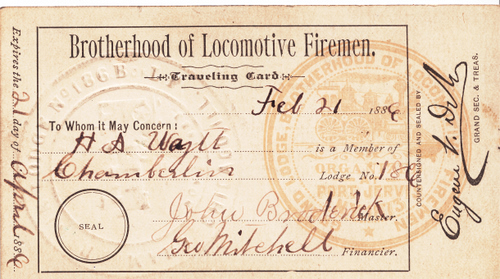 Brotherhood of Locomotive Firemen.
Traveling Card
Feb 21 1886
To Whom it May Concern:
H A
is a Member of
Chamberlin
Lodge No. 186
John Broderick
Master.
SEAL
Geo Mitchell
Financier.
Expires the 21 day of April 1886.
COUNTERSIGNED AND SEALED BY
Eugene V. Debs
GRAND SEC. & TREAS.